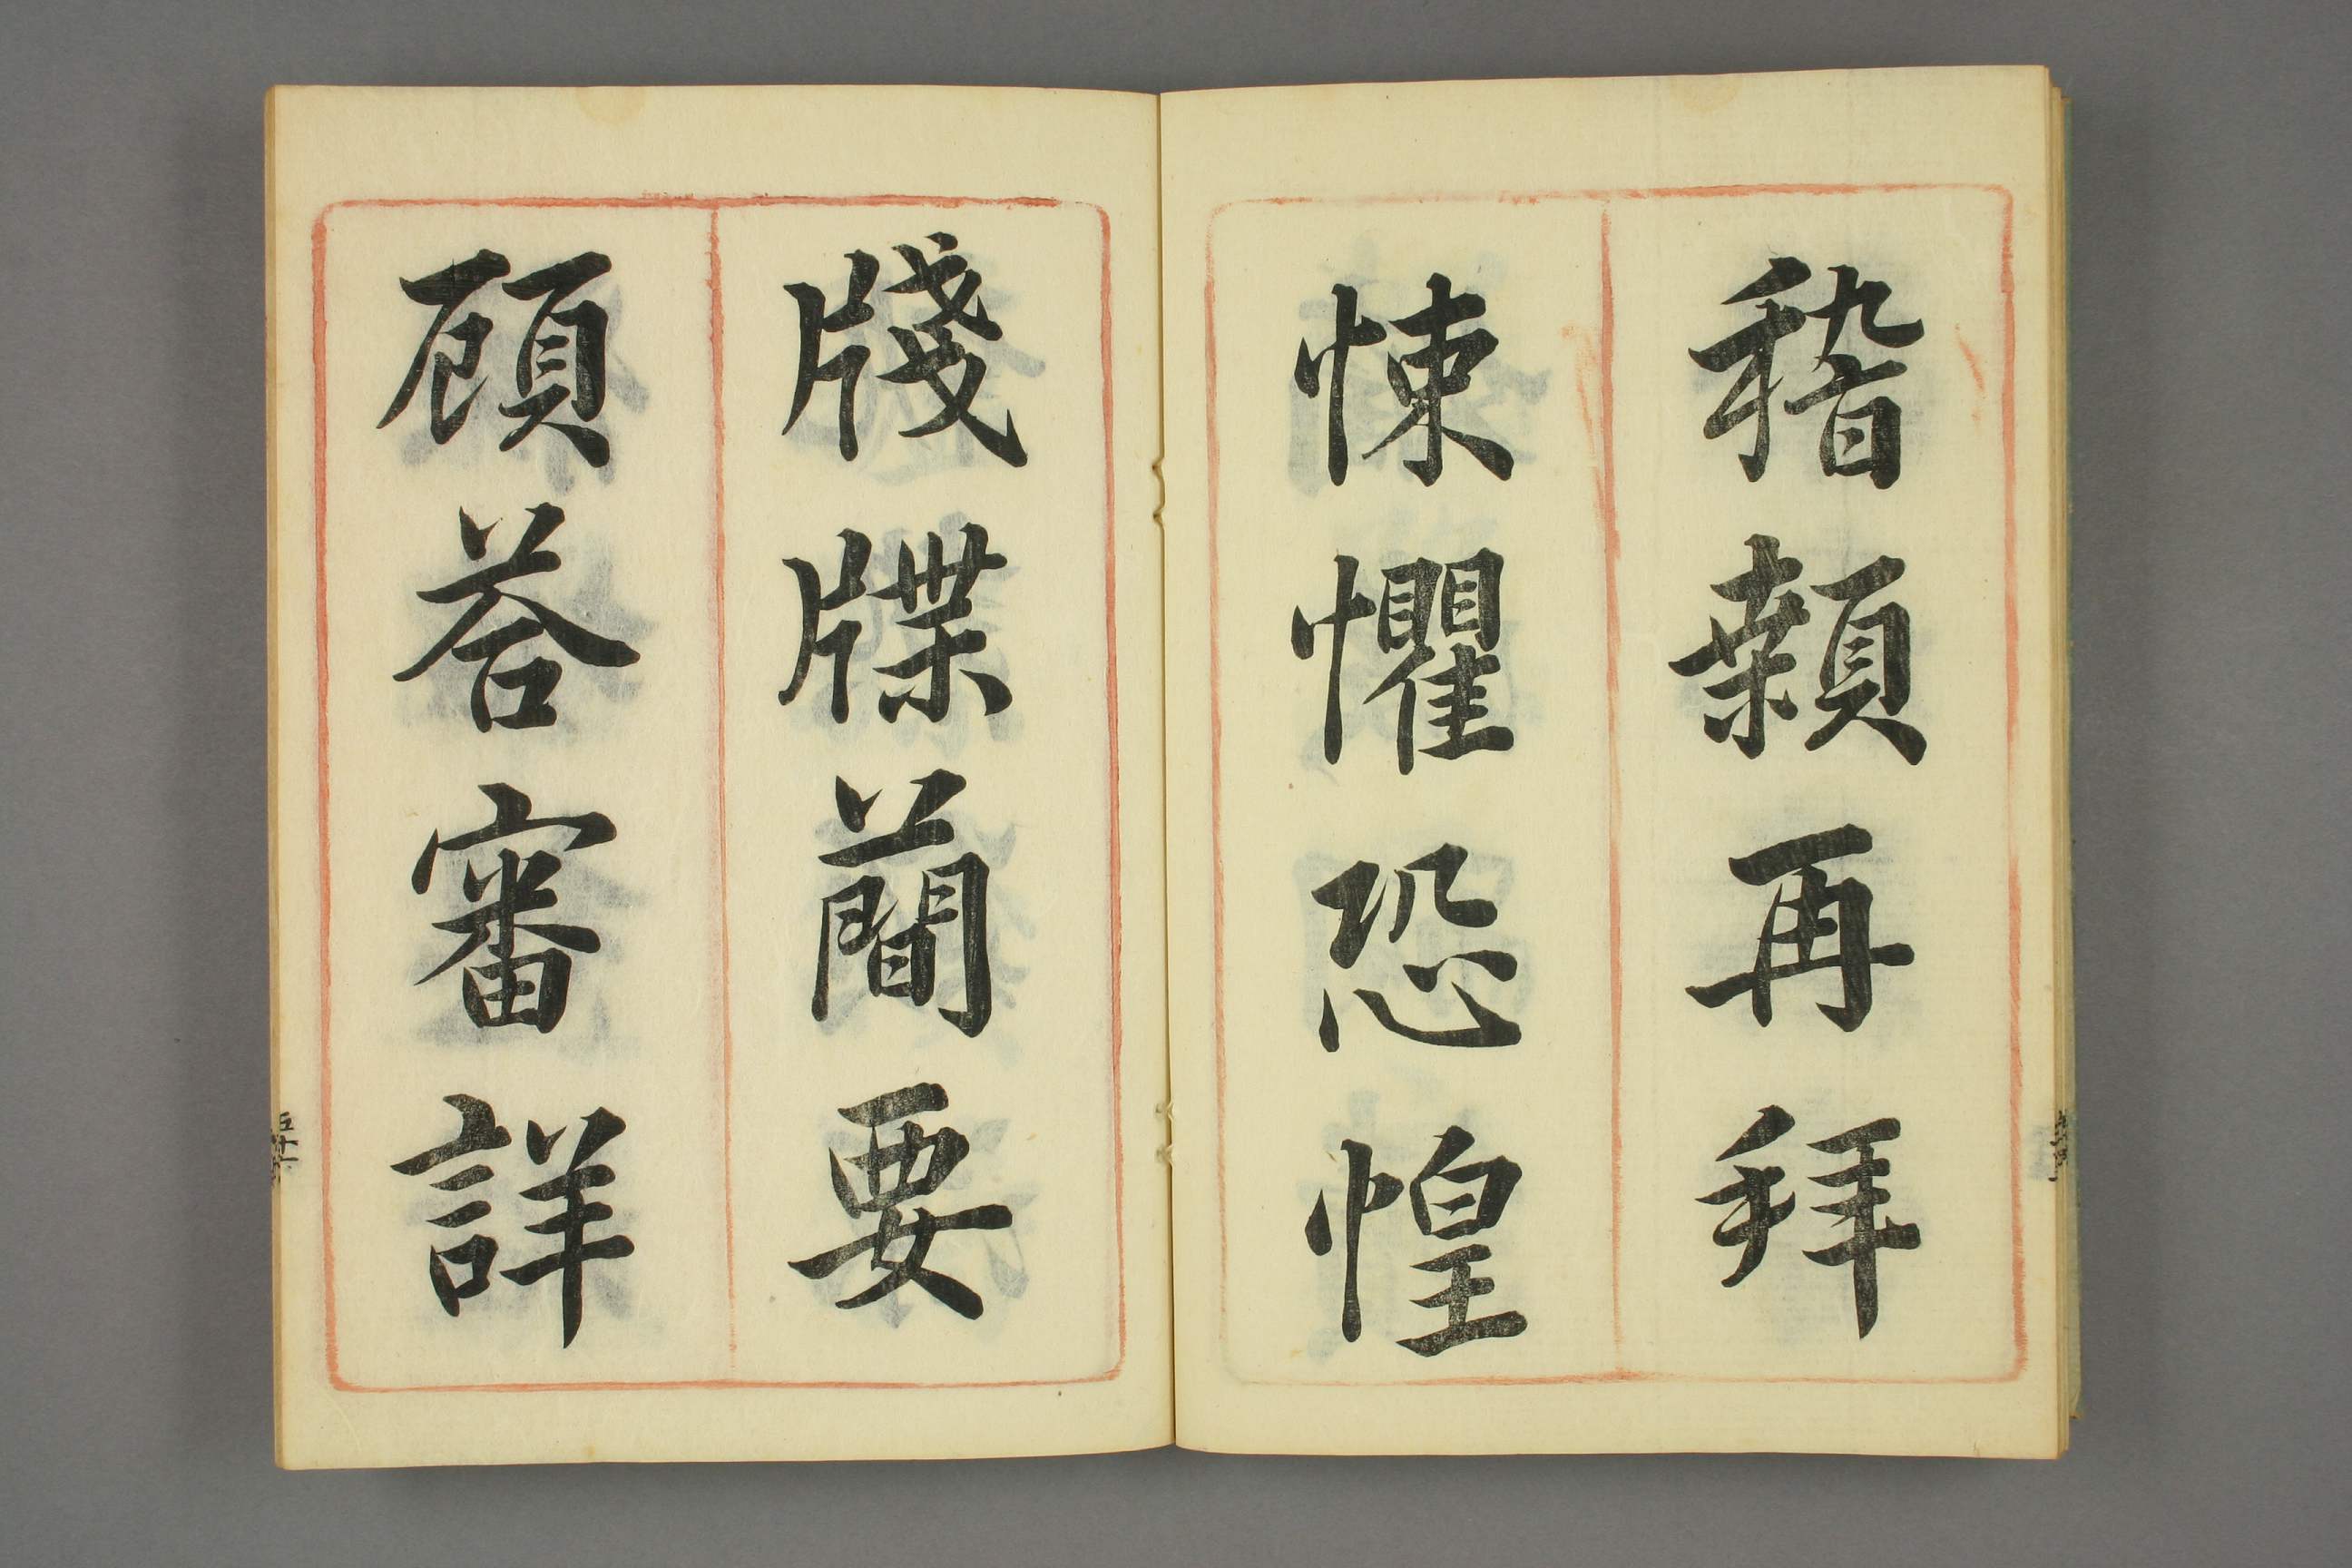 稽顙再拜
悚懼恐惶
牋牒蕳要
顧荅審詳